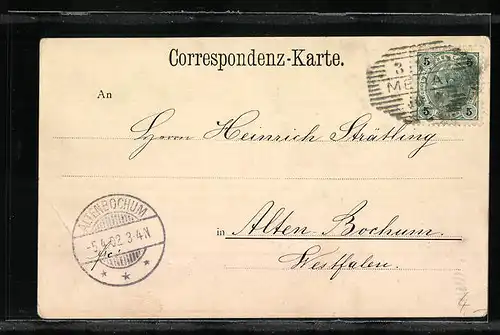 Correspondenz-Karte.
5 5
3
ME
5 5
An
Herrn Heinrich Strätling
ALTENBOCHUM
-5.4.02.3-4N
in Alten-Bochum.
Westfalen.
4